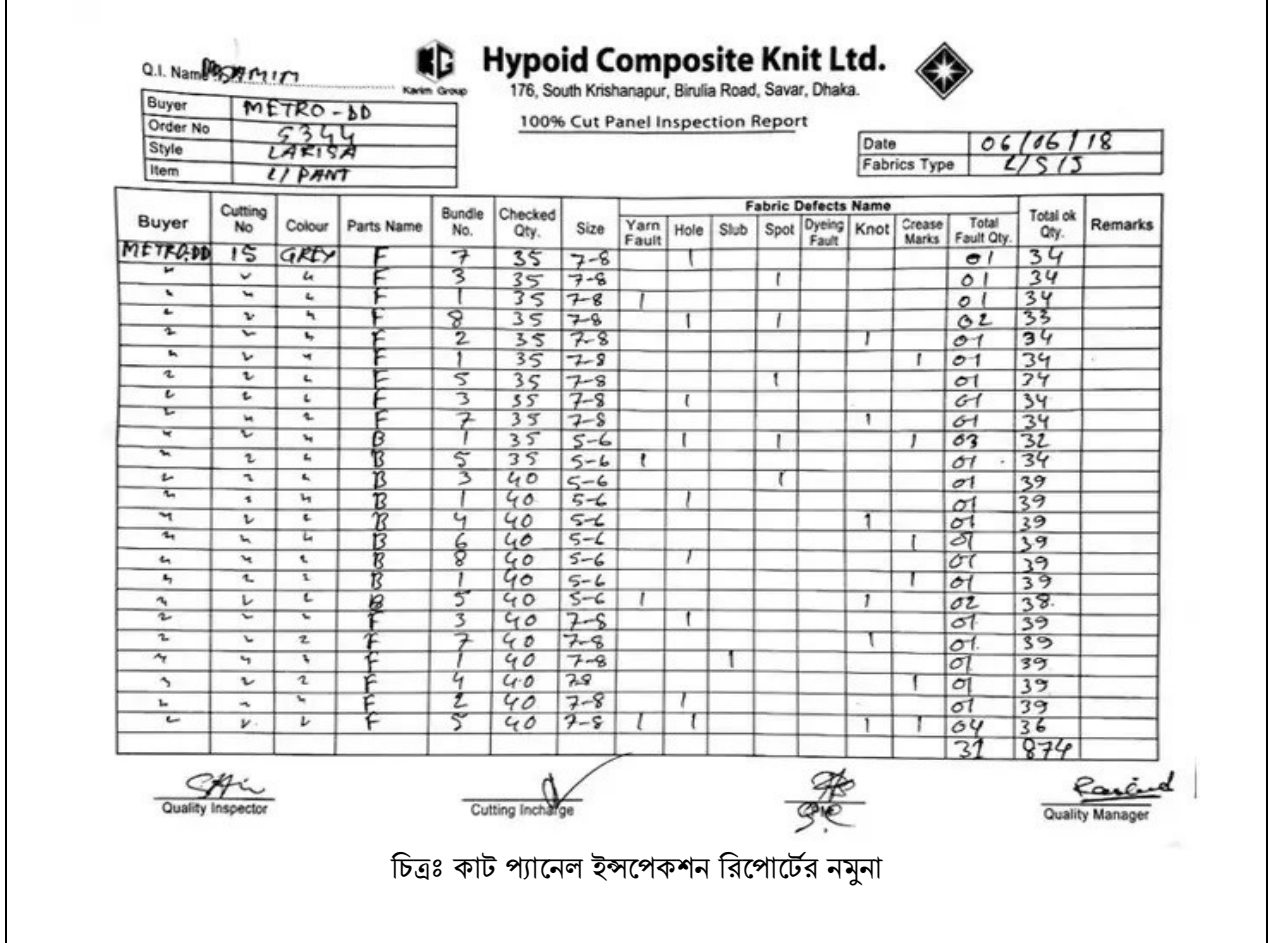 Q.I. Name SAMIM
KG
Karim Group
Hypoid Composite Knit Ltd.
176, South Krishanapur, Birulia Road, Savar, Dhaka.
100% Cut Panel Inspection Report
Buyer METRO-BD
Order No 5344
Style LARISA
Item L/PANT
Date 06/06/18
Fabrics Type L/S/J
Fabric Defects Name
Buyer Cutting No Colour Parts Name Bundle No. Checked Qty. Size Yarn Fault Hole Slub Spot Dyeing Fault Knot Crease Marks Total Fault Qty. Total ok Qty. Remarks
METRO.BD 15 GREY F 7 35 7-8 1 01 34
" " " F 3 35 7-8 1 01 34
" " " F 1 35 7-8 1 01 34
" " " F 8 35 7-8 1 1 02 33
" " " F 2 35 7-8 1 01 34
" " " F 1 35 7-8 1 01 34
" " " F 5 35 7-8 1 01 34
" " " F 3 35 7-8 1 01 34
" " " F 7 35 7-8 1 01 34
" " " B 1 35 5-6 1 1 1 03 32
" " " B 5 35 5-6 1 01 34
" " " B 3 40 5-6 1 01 39
" " " B 1 40 5-6 1 01 39
" " " B 4 40 5-6 1 01 39
" " " B 6 40 5-6 1 01 39
" " " B 8 40 5-6 1 01 39
" " " B 1 40 5-6 1 01 39
" " " B 5 40 5-6 1 1 02 38
" " " F 3 40 7-8 1 01 39
" " " F 7 40 7-8 1 01 39
" " " F 1 40 7-8 1 01 39
" " " F 4 40 7-8 1 01 39
" " " F 2 40 7-8 1 01 39
" " " F 5 40 7-8 1 1 1 1 04 36
31 874
Quality Inspector Cutting Incharge Quality Manager
চিত্রঃ কাট প্যানেল ইন্সপেকশন রিপোর্টের নমুনা